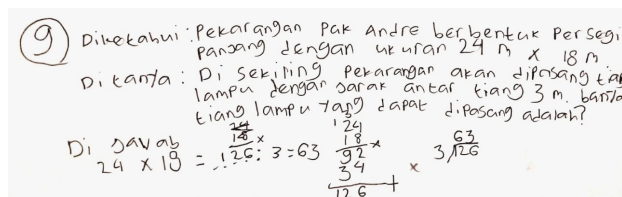 9 Diketahui : Pekarangan Pak Andre berbentuk Persegi
Panjang dengan ukuran 24 m x 18 m
Di tanya : Di sekiling Pekarangan akan dipasang tian
lampu dengan jarak antar tiang 3 m. banya
tiang lampu yang dapat dipasang adalah?
Di jawab
24 x 18 = 126 : 3 = 63
24
18 x
92
34
126 +
x
63
3 √126